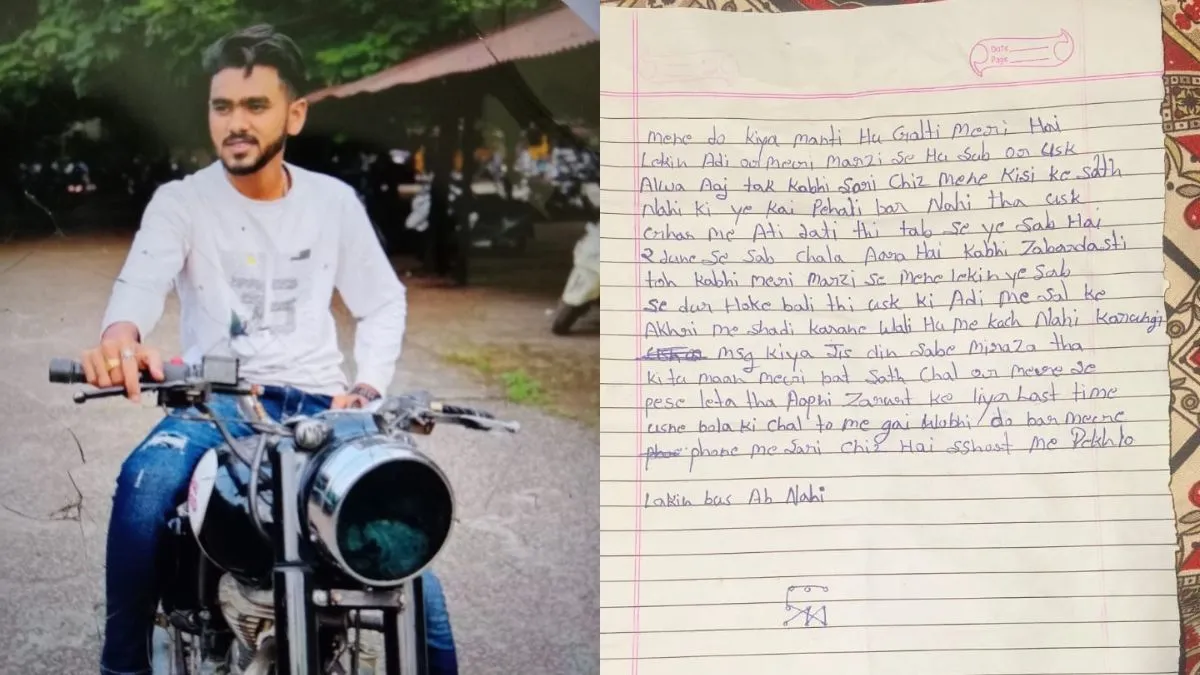 Date
Page
mene do kiya manti Hu Galti Meri Hai
Lekin Adi or meri Marzi se Hu Sab or Usk
Alwa Aaj tak Kabhi Sari Chiz Mene Kisi ke sath
Nahi ki ye Kai Pehali bar Nahi tha usk
Ghar me Ati Jati thi tab se ye Sab Hai
2 June Se Sab Chala Aara Hai Kabhi Zabardasti
toh Kabhi meri Marzi se Mene lekin ye Sab
se dur Hoke bali thi usk ki Adi me Sal ke
Akhri me shadi karane Wali Hu Me Kach Nahi Karungi
msg kiya Jis din Sabe
tha
ki tu maan meri bat Sath Chal or mere se
pese leta tha Aaphi Zarurt ke liya Last time
usne bola ki Chal to me gai Wabhi do bar merne
phone me Sari Chiz Hai sshost Me Dekhlo
Lakin bas Ab Nahi